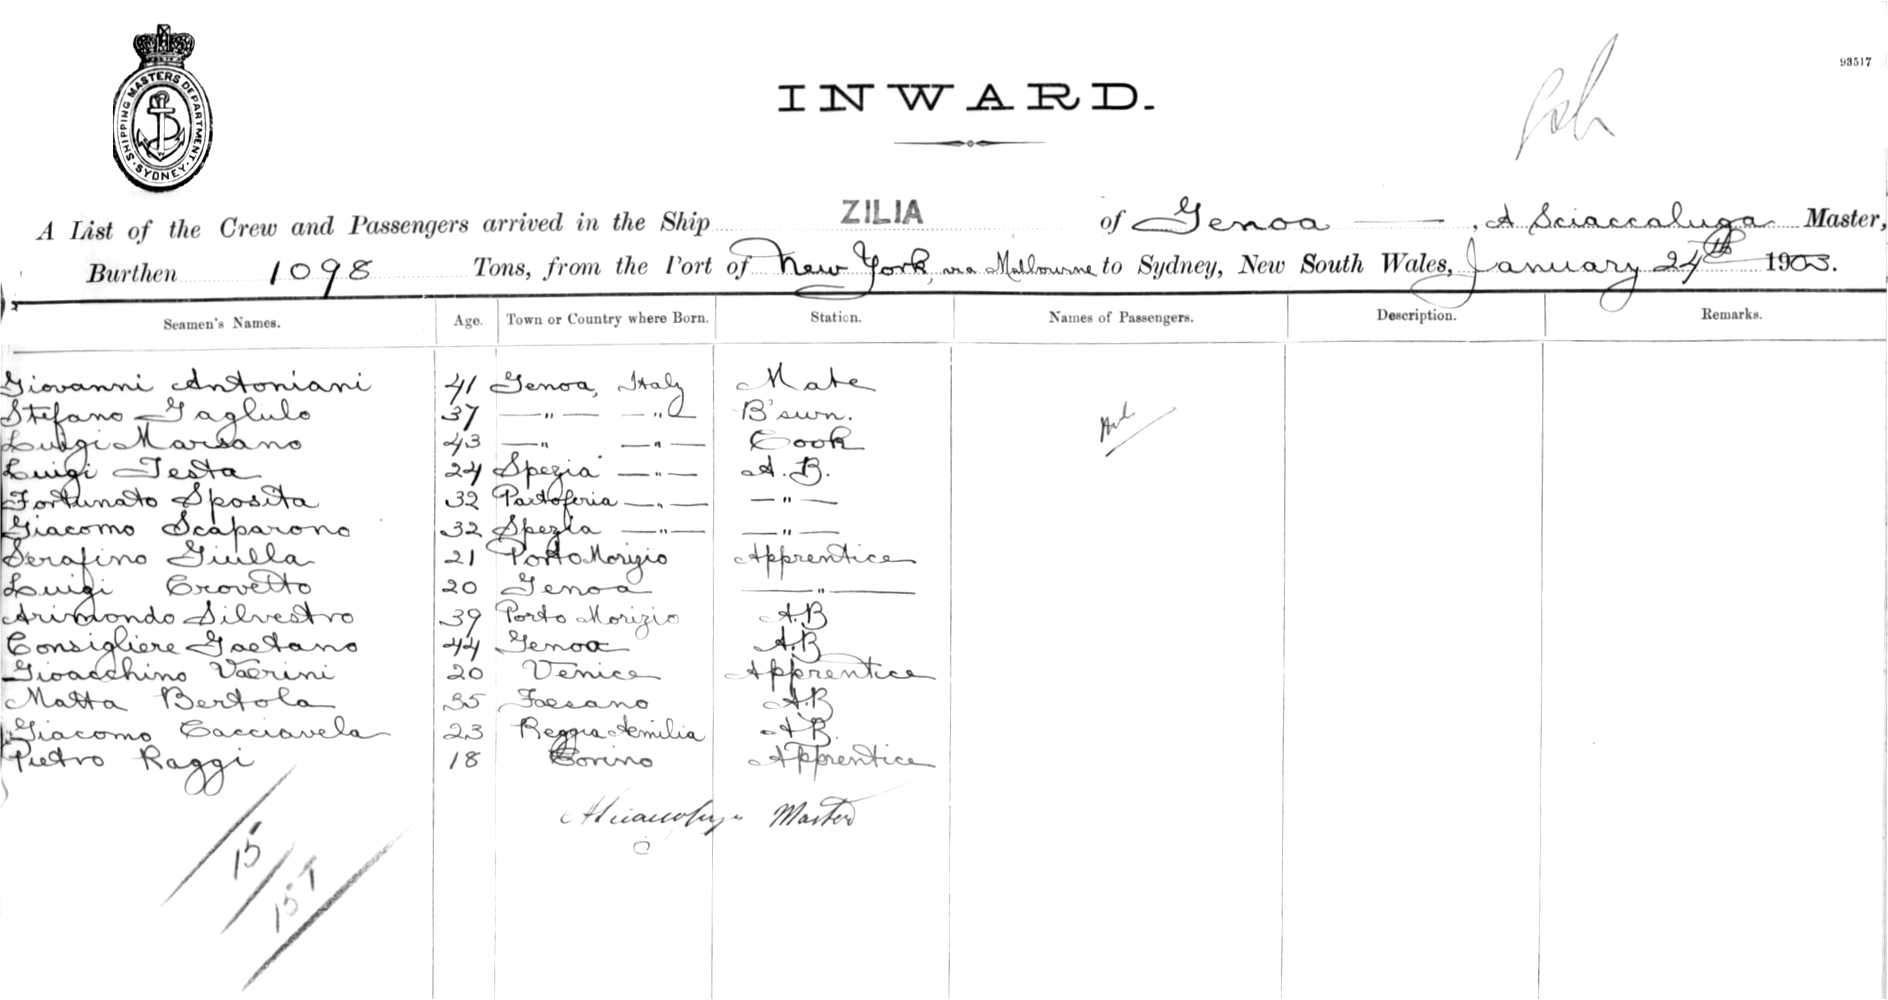 SHIPPING MASTERS DEPARTMENT. SYDNEY
93517
INWARD.
A List of the Crew and Passengers arrived in the Ship ZILIA of Genoa, A Sciaccaluga Master,
Burthen 1098 Tons, from the Port of New York, via Melbourne to Sydney, New South Wales, January 24th 1903.
Seamen's Names. Age. Town or Country where Born. Station. Names of Passengers. Description. Remarks.
Giovanni Antoniani 41 Genoa, Italy Mate
Stefano Gaglulo 37 — " — — " — B'swn.
Luigi Marsano 43 — " — " — Cook
Luigi Testa 24 Spezia — " — A.B.
Fortunato Sposita 32 Partoferia — " — — " —
Giacomo Scaparono 32 Spezia — " — — " —
Serafino Giulla 21 Porto Morizio Apprentice
Luigi Crovetto 20 Genoa — " —
Arimondo Silvestro 39 Porto Morizio A.B
Consigliere Gaetano 44 Genoa A.B
Gioacchino 20 Venice Apprentice
Matta Bertola 35 Faesano A.B
Giacomo Cacciavela 23 Reggia Aemilia A B.
Pietro Raggi 18 Torino Apprentice
Master
15